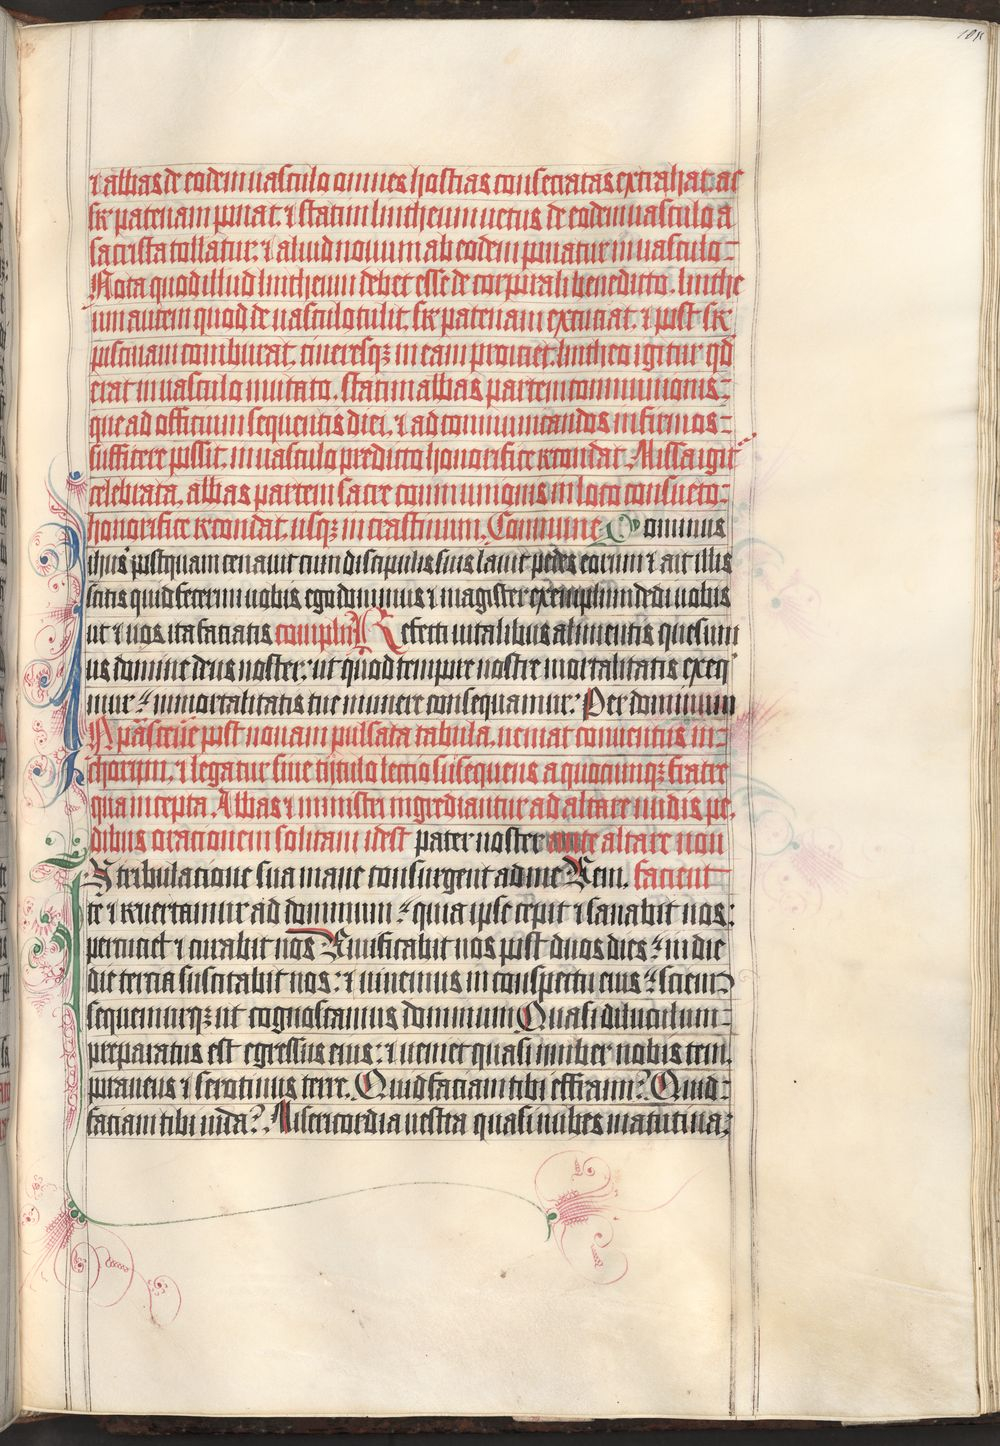 108
⁊ abbas de eodem uasculo omnes hostias consecratas extrahat ac
sr̄ patenam ponat. ⁊ statim lintheum uetus de eodem uasculo a
sacrista tollatur: ⁊ aliud nouum ab eodem ponatur in uasculo
Nota quod illud lintheum debet esse de corporali benedicto. linthe
um autem quod de uasculo tulit. sr̄ patenam excutiat. ⁊ post sr̄
piscinam comburat. cineresqꝫ in eam proiciet. lintheo igitur qd̄
erat in uasculo mutato. statim abbas partem communionis
que ad officium sequentis diei. ⁊ ad communicandos infirmos
sufficere possit. in uasculo predicto honorifice recondat. Missa igit̄
celebrata. abbas partem sacre communionis in loco consueto
honorifice recondat. usqꝫ in crastinum. Commune Dominus
ihūs postquam cenauit cum discipulis suis lauit pedes eorum ⁊ ait illis
scitis quid fecerim uobis ego dominus ⁊ magister exemplum dedi uobis
ut ⁊ uos ita faciatis complēn Refecti uitalibus alimentis quesum
us domine deus noster: ut quod tempore nostre mortalitatis exeq̄
mur immortalitatis tue munere consequamur. Per dominum
In parasceue post nonam pulsata tabula. ueniat conuentus in
chorum. ⁊ legatur sine tytulo lectio subsequens a quocumqꝫ fratre
qua incepta. Abbas ⁊ ministri ingrediantur ad altare nudis pe
dibus orationem solitam idest pater noster ante altare non
In tribulacione sua mane consurgent ad me Ueni. facient
te ⁊ reuertamur ad dominum quia ipse cepit ⁊ sanabit nos:
percuciet ⁊ curabit nos Uiuificabit nos post duos dies in die
die tercia suscitabit nos: ⁊ uiuemus in conspectu eius sciem̄
sequemurqꝫ ut cognoscamus dominum Quasi diluculum
preparatus est egressus eius: ⁊ ueniet quasi imber nobis tem
poraneus ⁊ serotinus terre. Quid faciam tibi effraim? Quid
faciam tibi iuda? Misericordia uestra quasi nubes matutina: